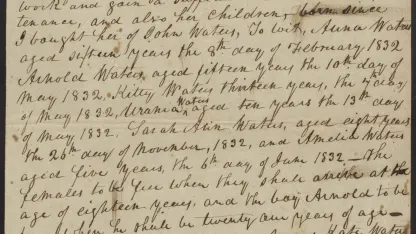 work and gain a
tenance, and also her Children, born since
I bought her of John Waters, To wit, Anna Waters
aged sixteen years the 8th day of February 1832
Arnold Waters, aged fifteen years the 10th day of
May 1832, Kitty Waters thirteen years, the 7th day
of May 1832, Urania Waters aged ten years the 13th day
of May 1832. Sarah Ann Waters, aged eight years
the 26th day of November, 1832, and Amelia Waters
aged five years, the 6th day of June 1832 — the
females to be free when they shall arrive at the
age of eighteen years, and the boy Arnold to be
when he shall be twenty one years of age —
Waters